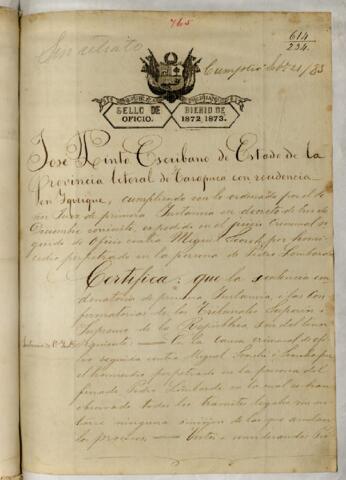 765
614
234.
Sin retrato
SELLO DE OFICIO.
BIENIO DE 1872 1873.
José Pinto Escribano de Estado de la
Provincia litoral de Tarapacá con residencia
en Iquique, cumpliendo con lo ordenado por el Se
ñor Juez de primera Instancia en decreto de tres de
Diciembre corriente, expedido en el juicio Criminal se
guido de oficio contra Miguel por homi
cidio perpetrado en la persona de Pedro Lombardo
Certifica: que la sentencia con
denatoria de primera Instancia, i las con
firmatorias de los Tribunales Superior i
Supremo de la República son del tenor
siguiente. En la causa criminal de ofi
cio seguida contra Miguel por
el homicidio perpetrado en la persona del
finado Pedro Lombardo en la cual se han
observado todos los tramites legales sin no
tarse ninguna omision de las que anulan
los procesos. Vistos i considerando: Pri